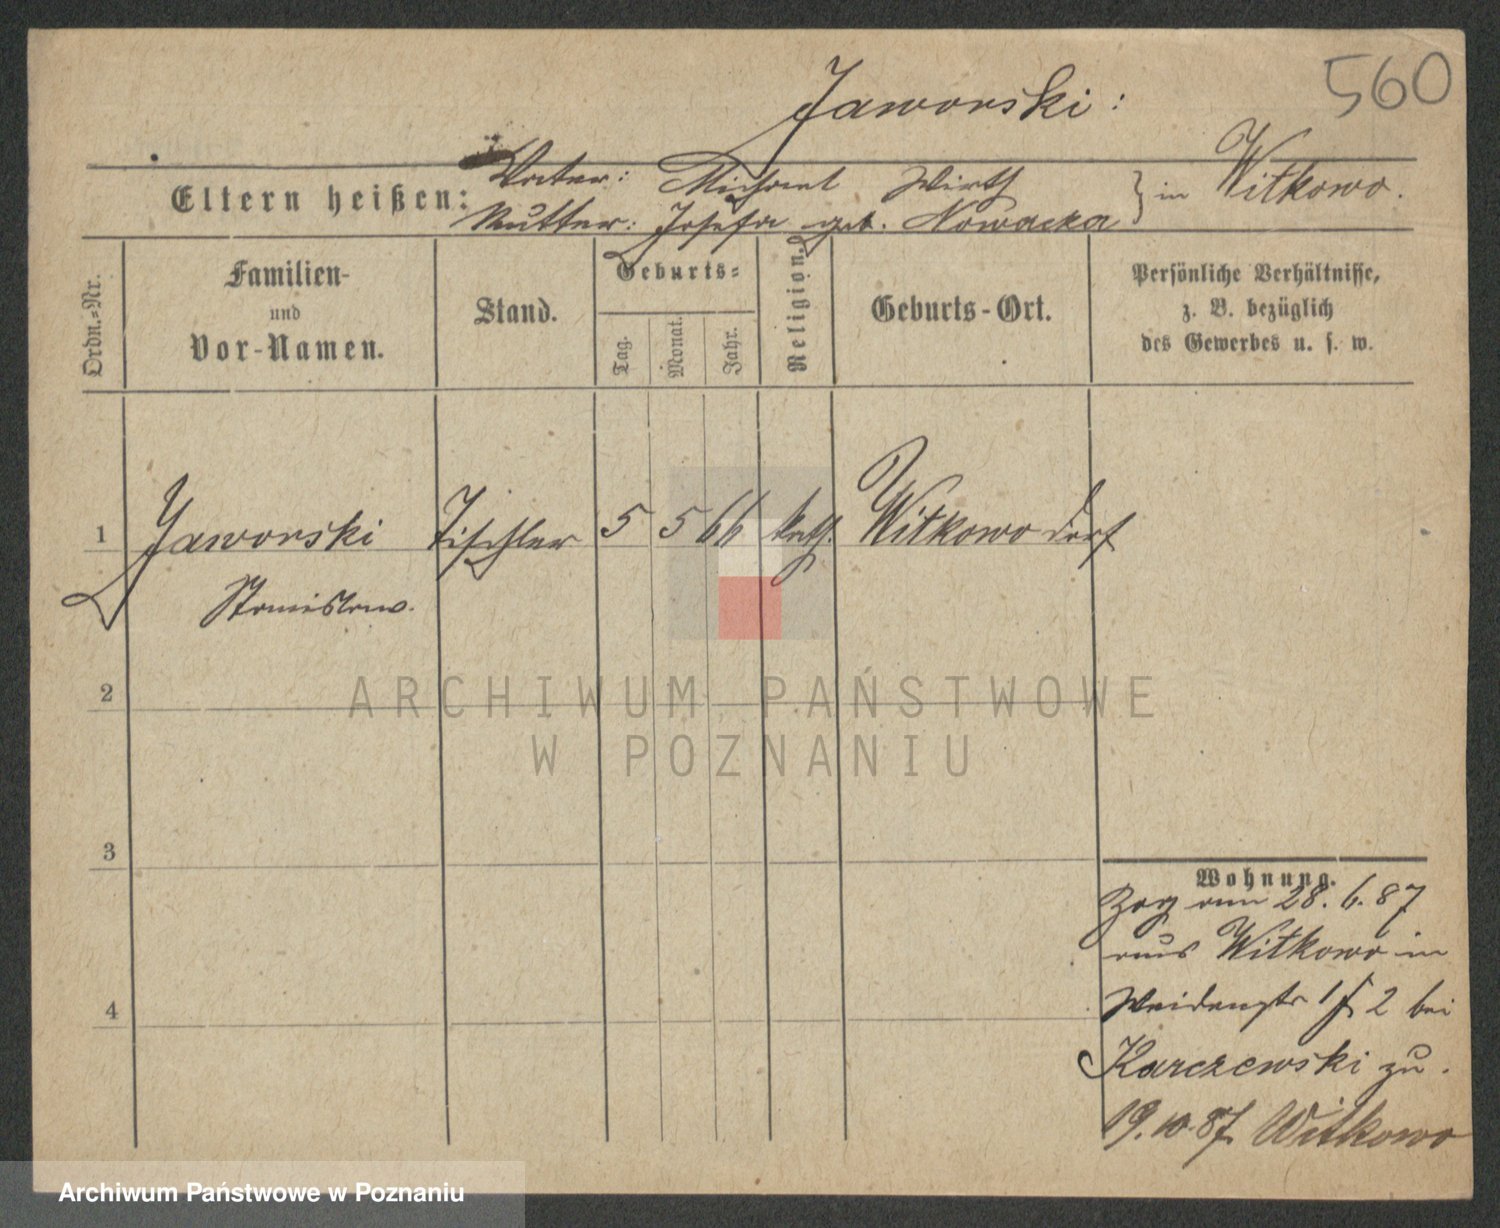 560
Jaworski:
Eltern heißen:
Vater: Michael Wirth } in Witkowo.
Mutter: Josefa geb. Nowacka
Ordn.=Nr.
Familien-
und
Vor-Namen.
Stand.
Geburts=
Tag.
Monat.
Jahr.
Religion.
Geburts-Ort.
Persönliche Verhältnisse,
z. B. bezüglich
des Gewerbes u. s. w.
1 Jaworski Tischler 5 5 66 kath. Witkowo dorf
Stanislaw.
2
3
4
Wohnung.
Zog am 28. 6. 87
aus Witkowo in
Weidengstr 1 2 bei
Karczewski zu.
19. 10. 87 Witkowo
ARCHIWUM PAŃSTWOWE
W POZNANIU
Archiwum Państwowe w Poznaniu